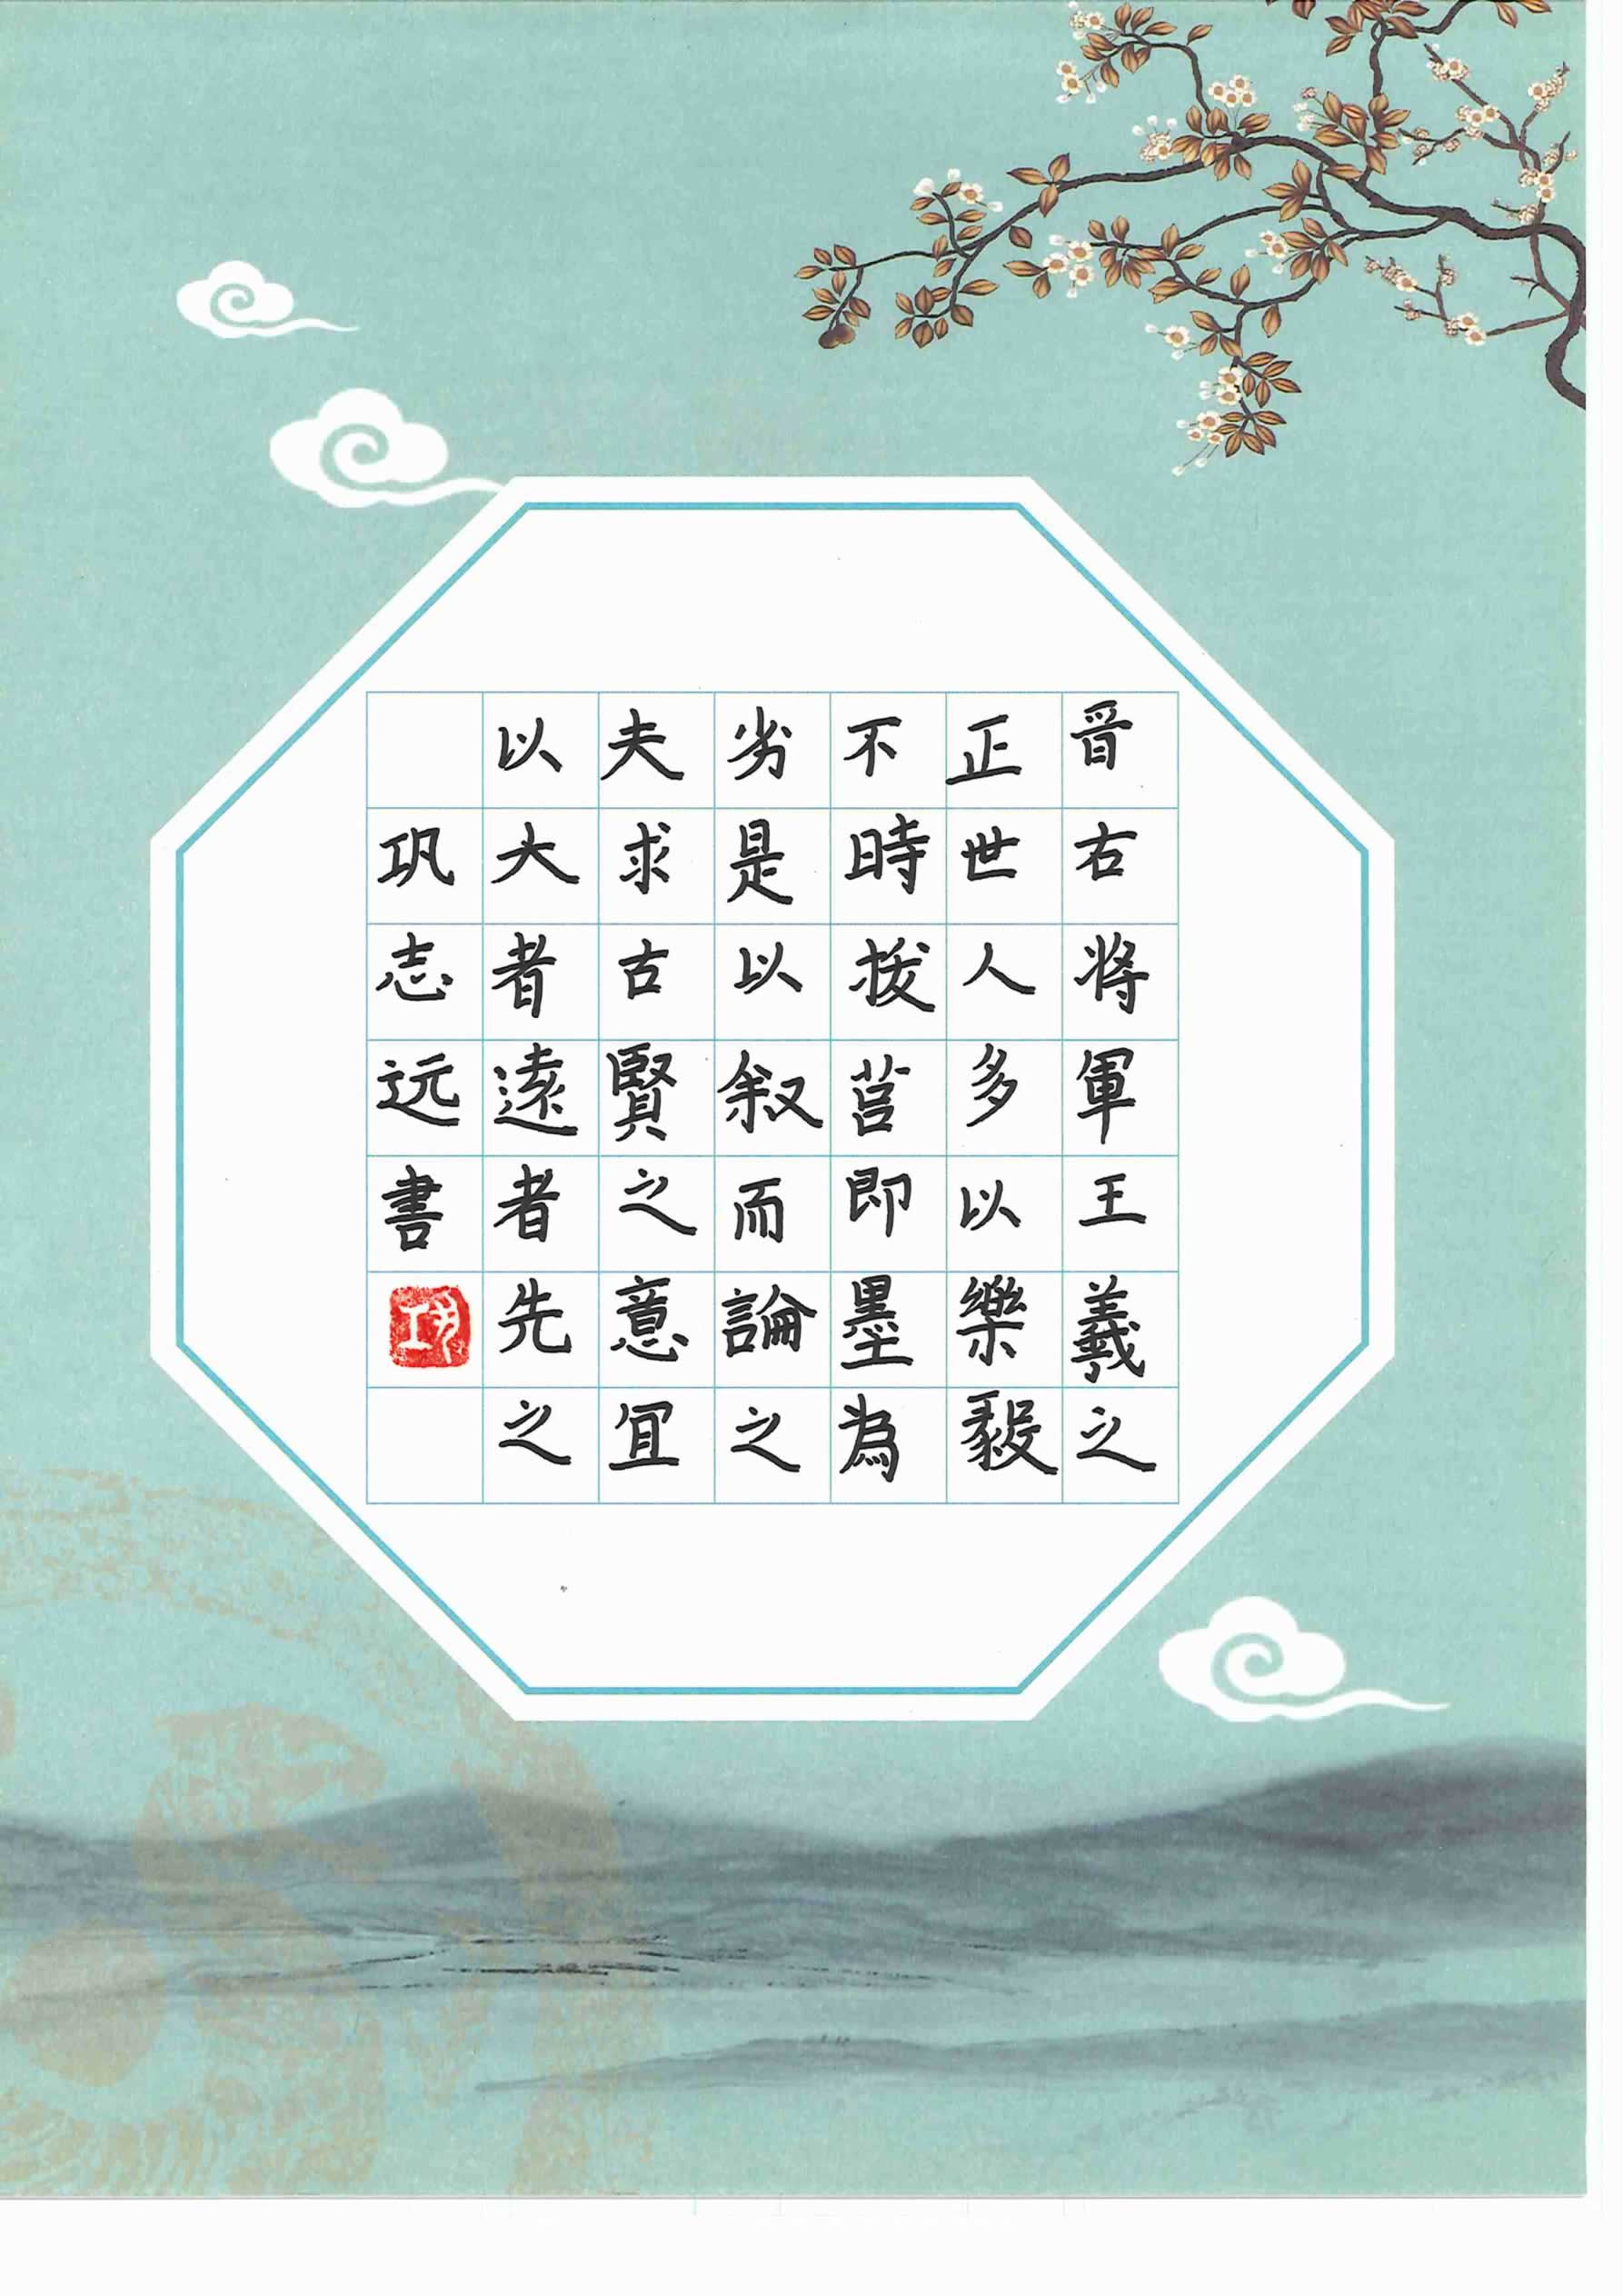 晉右将軍王羲之
正世人多以樂毅
不時拔莒即墨為
劣是以叙而論之
夫求古賢之意宜
以大者遠者先之
巩志远書
巩